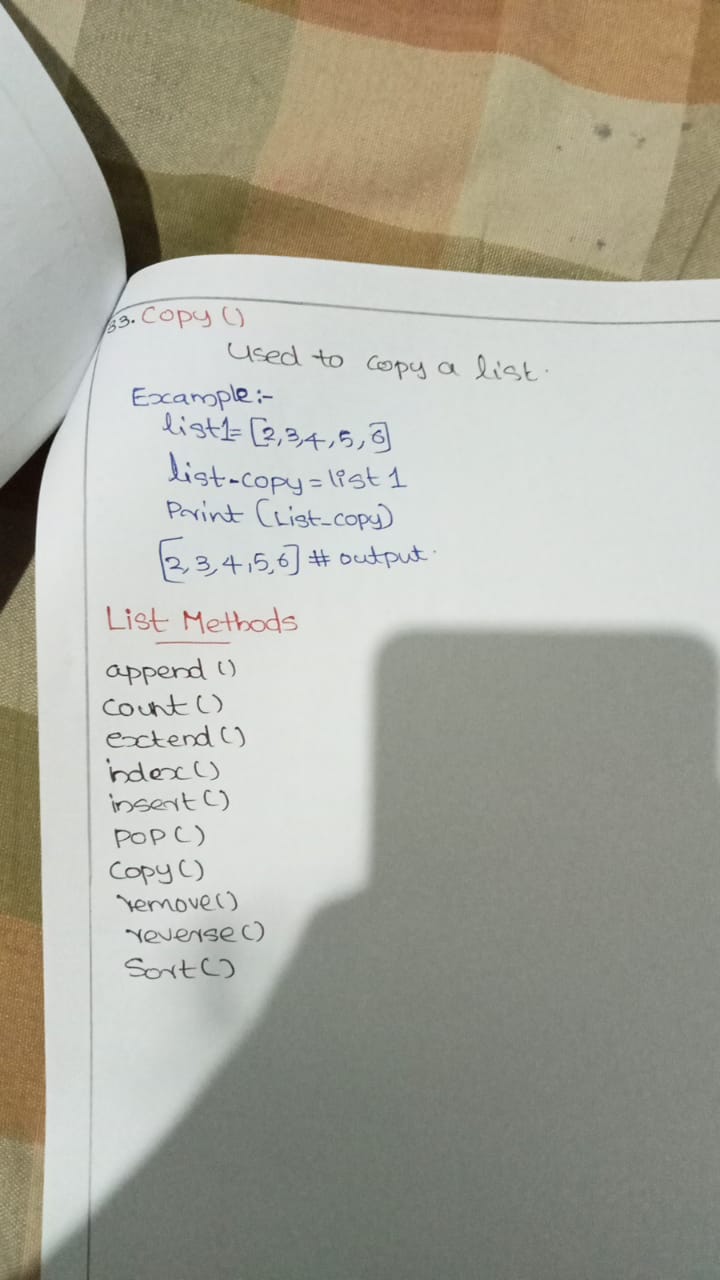 33. Copy ()
Used to copy a list.
Example:-
list1= [2,3,4,5,6]
list-copy = list 1
Print (List-copy)
[2,3,4,5,6] # output.
List Methods
append ()
Count ()
extend ()
index ()
insert ()
POP ()
Copy ()
remove ()
reverse ()
Sort ()